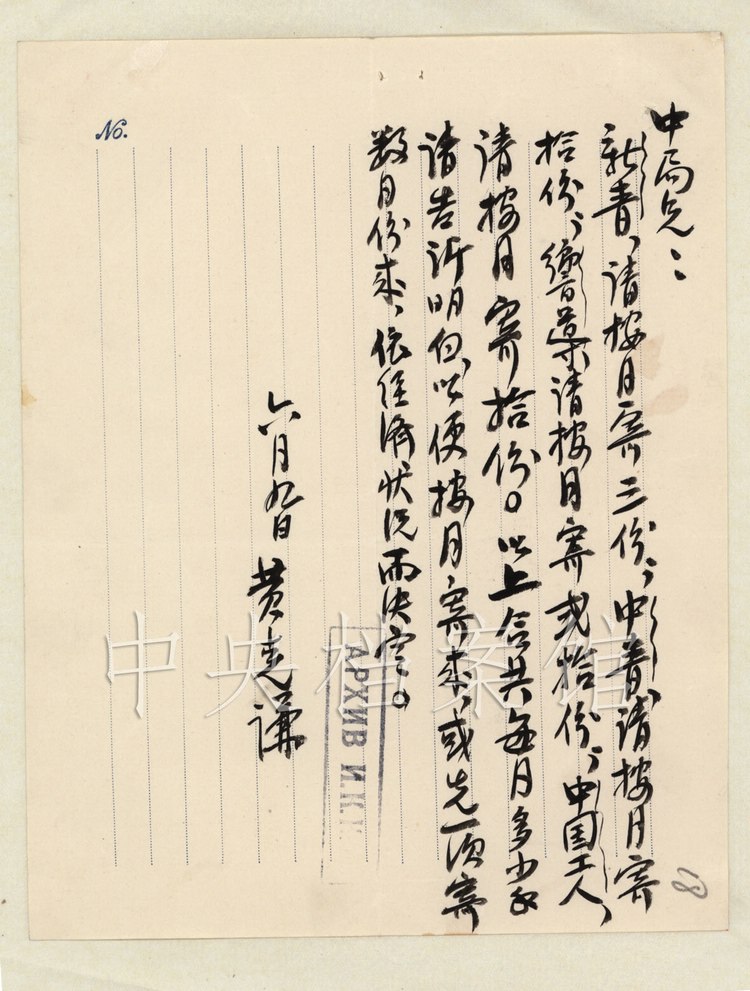 中局兄：
新青，请按月寄三份，中青，请按月寄
拾份，嚮導请按月寄弍拾份，中国工人，
请按月寄拾份。以上合共每月多少 
请告訴明白，以便按月寄来，或先一次寄
数月份来，依经濟状况而决定。
六月九日 黄克謙
No.
АРХИВ И.К.К
中央档案馆